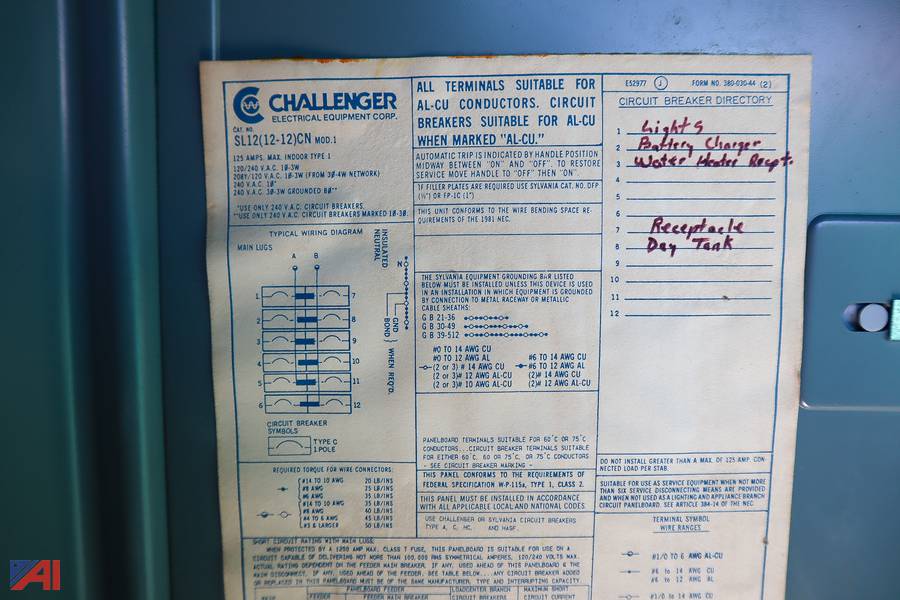 CHALLENGER
ELECTRICAL EQUIPMENT CORP.
CAT. NO.
SL12(12-12)CN MOD.1
125 AMPS. MAX. INDOOR TYPE 1
120/240 V.A.C. 1Ø-3W
208Y/120 V.A.C. 1Ø-3W (FROM 3Ø-4W NETWORK)
240 V.A.C. 1Ø*
240 V.A.C. 3Ø-3W GROUNDED BØ**
*USE ONLY 240 V.A.C. CIRCUIT BREAKERS.
**USE ONLY 240 V.A.C. CIRCUIT BREAKERS MARKED 1Ø-3Ø.
TYPICAL WIRING DIAGRAM
MAIN LUGS
A B
INSULATED
NEUTRAL
N
GND
BOND
WHEN REQ'D.
1 7
2 8
3 9
4 10
5 11
6 12
CIRCUIT BREAKER
SYMBOLS
TYPE C
1 POLE
REQUIRED TORQUE FOR WIRE CONNECTORS:
#14 TO 10 AWG 20 LB/INS
#8 AWG 25 LB/INS
#6 AWG 35 LB/INS
#14 TO 10 AWG 35 LB/INS
#8 AWG 40 LB/INS
#4 TO 6 AWG 45 LB/INS
#3 & LARGER 50 LB/INS
ALL TERMINALS SUITABLE FOR
AL-CU CONDUCTORS. CIRCUIT
BREAKERS SUITABLE FOR AL-CU
WHEN MARKED "AL-CU."
AUTOMATIC TRIP IS INDICATED BY HANDLE POSITION
MIDWAY BETWEEN "ON" AND "OFF". TO RESTORE
SERVICE MOVE HANDLE TO "OFF" THEN "ON".
IF FILLER PLATES ARE REQUIRED USE SYLVANIA CAT. NO. DFP
(½") OR FP-1C (1")
THIS UNIT CONFORMS TO THE WIRE BENDING SPACE RE-
QUIREMENTS OF THE 1981 NEC.
THE SYLVANIA EQUIPMENT GROUNDING BAR LISTED
BELOW MUST BE INSTALLED UNLESS THIS DEVICE IS USED
IN AN INSTALLATION IN WHICH EQUIPMENT IS GROUNDED
BY CONNECTION TO METAL RACEWAY OR METALLIC
CABLE SHEATHS:
G B 21-36
G B 30-49
G B 39-512
#0 TO 14 AWG CU
#0 TO 12 AWG AL
(2 or 3)# 14 AWG CU
(2 or 3)# 12 AWG AL-CU
(2 or 3)# 10 AWG AL-CU
#6 TO 14 AWG CU
#6 TO 12 AWG AL
(2)# 14 AWG CU
(2)# 12 AWG AL-CU
PANELBOARD TERMINALS SUITABLE FOR 60°C OR 75°C
CONDUCTORS...CIRCUIT BREAKER TERMINALS SUITABLE
FOR EITHER 60°C, 60 OR 75°C, OR 75°C CONDUCTORS
- SEE CIRCUIT BREAKER MARKING -
THIS PANEL CONFORMS TO THE REQUIREMENTS OF
FEDERAL SPECIFICATION W-P-115a, TYPE 1, CLASS 2.
THIS PANEL MUST BE INSTALLED IN ACCORDANCE
WITH ALL APPLICABLE LOCAL AND NATIONAL CODES.
USE CHALLENGER OR SYLVANIA CIRCUIT BREAKERS
TYPE A, C, HC, AND HAGF.
E52977 J FORM NO. 380-030-44 (2)
CIRCUIT BREAKER DIRECTORY
1 Lights
2 Battery Charger
3 Water Heater Recpt.
4
5
6
7 Receptacle
8 Day Tank
9
10
11
12
DO NOT INSTALL GREATER THAN A MAX. OF 125 AMP. CON-
NECTED LOAD PER STAB.
SUITABLE FOR USE AS SERVICE EQUIPMENT WHEN NOT MORE
THAN SIX SERVICE DISCONNECTING MEANS ARE PROVIDED
AND WHEN NOT USED AS A LIGHTING AND APPLIANCE BRANCH
CIRCUIT PANELBOARD. SEE ARTICLE 384-14 OF THE NEC.
TERMINAL SYMBOL
WIRE RANGES
#1/0 TO 6 AWG AL-CU
#6 to 14 AWG CU
#6 to 12 AWG AL
#1/0 to 14 AWG CU
SHORT CIRCUIT RATING WITH MAIN LUGS:
WHEN PROTECTED BY A 1200 AMP MAX. CLASS T FUSE, THIS PANELBOARD IS SUITABLE FOR USE ON A
CIRCUIT CAPABLE OF DELIVERING NOT MORE THAN 100,000 RMS SYMMETRICAL AMPERES, 120/240 VOLTS MAX.
ACTUAL RATING DEPENDENT ON THE FEEDER MAIN BREAKER, IF ANY, USED AHEAD OF THIS PANELBOARD & THE
MAIN DISCONNECT, IF ANY, USED AHEAD OF THE FEEDER. SEE TABLE BELOW...ANY CIRCUIT BREAKER ADDED
OR REPLACED IN THIS PANELBOARD MUST BE OF THE SAME MANUFACTURER, TYPE AND INTERRUPTING CAPACITY.
PANELBOARD FEEDER LOADCENTER BRANCH MAXIMUM SHORT
FEEDER FEEDER MAIN BREAKER CIRCUIT BREAKERS CIRCUIT CURRENT
AI